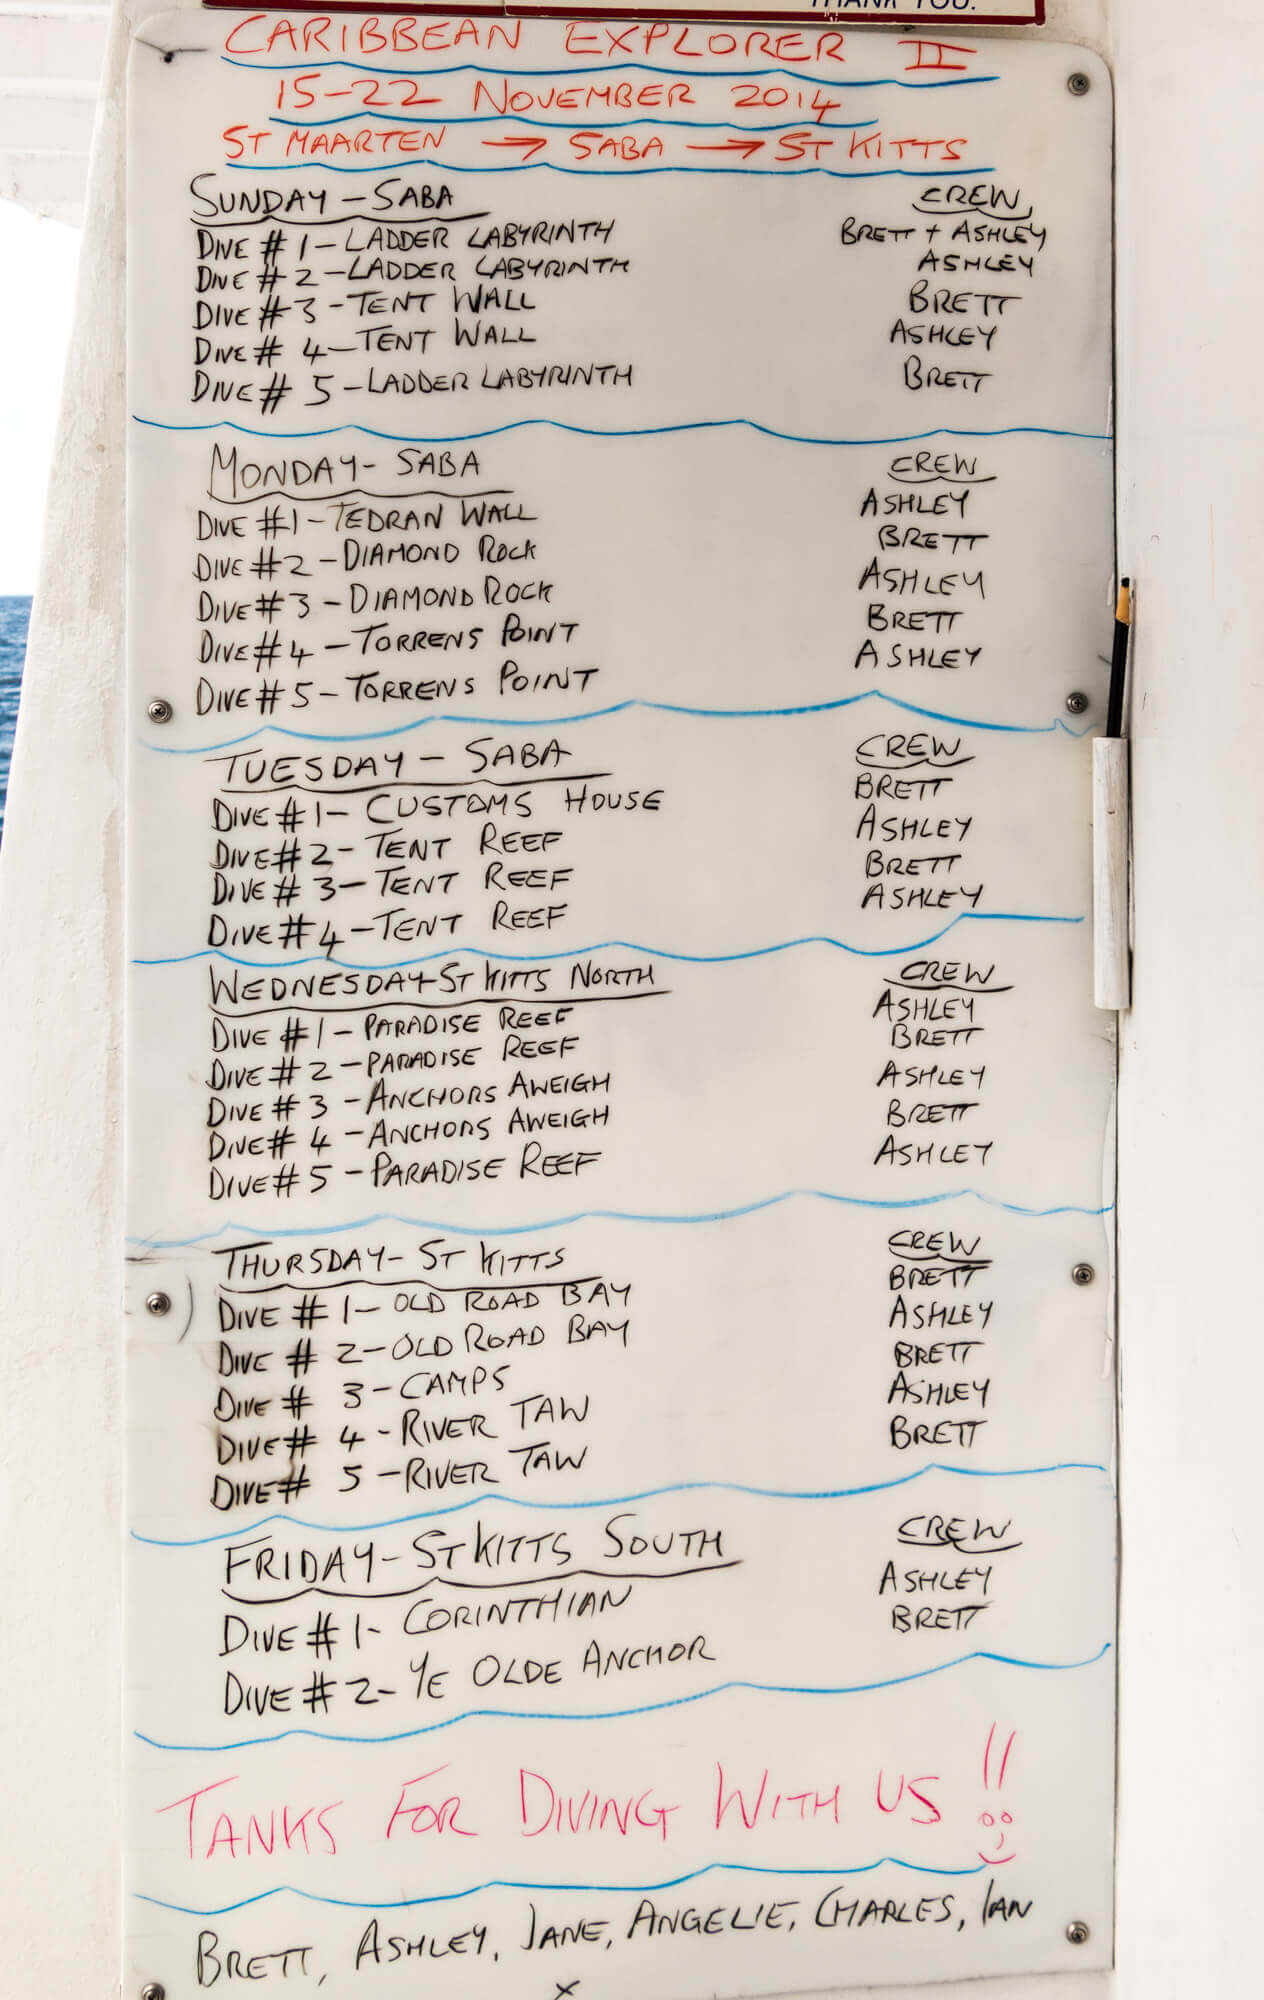 THANK YOU.
CARIBBEAN EXPLORER II
15-22 NOVEMBER 2014
ST MAARTEN → SABA → ST KITTS
SUNDAY - SABA CREW
DIVE # 1 - LADDER LABYRINTH BRETT + ASHLEY
DIVE # 2 - LADDER LABYRINTH ASHLEY
DIVE # 3 - TENT WALL BRETT
DIVE # 4 - TENT WALL ASHLEY
DIVE # 5 - LADDER LABYRINTH BRETT
MONDAY - SABA CREW
DIVE #1 - TEDRAN WALL ASHLEY
DIVE #2 - DIAMOND ROCK BRETT
DIVE #3 - DIAMOND ROCK ASHLEY
DIVE #4 - TORRENS POINT BRETT
DIVE #5 - TORRENS POINT ASHLEY
TUESDAY - SABA CREW
DIVE #1 - CUSTOMS HOUSE BRETT
DIVE #2 - TENT REEF ASHLEY
DIVE # 3 - TENT REEF BRETT
DIVE #4 - TENT REEF ASHLEY
WEDNESDAY - ST KITTS NORTH CREW
DIVE #1 - PARADISE REEF ASHLEY
DIVE # 2 - PARADISE REEF BRETT
DIVE # 3 - ANCHORS AWEIGH ASHLEY
DIVE # 4 - ANCHORS AWEIGH BRETT
DIVE # 5 - PARADISE REEF ASHLEY
THURSDAY - ST KITTS CREW
DIVE # 1 - OLD ROAD BAY BRETT
DIVE # 2 - OLD ROAD BAY ASHLEY
DIVE # 3 - CAMPS BRETT
DIVE # 4 - RIVER TAW ASHLEY
DIVE # 5 - RIVER TAW BRETT
FRIDAY - ST KITTS SOUTH CREW
DIVE #1 - CORINTHIAN ASHLEY
DIVE # 2 - YE OLDE ANCHOR BRETT
TANKS FOR DIVING WITH US !!
BRETT, ASHLEY, JANE, ANGELIE, CHARLES, IAN
X